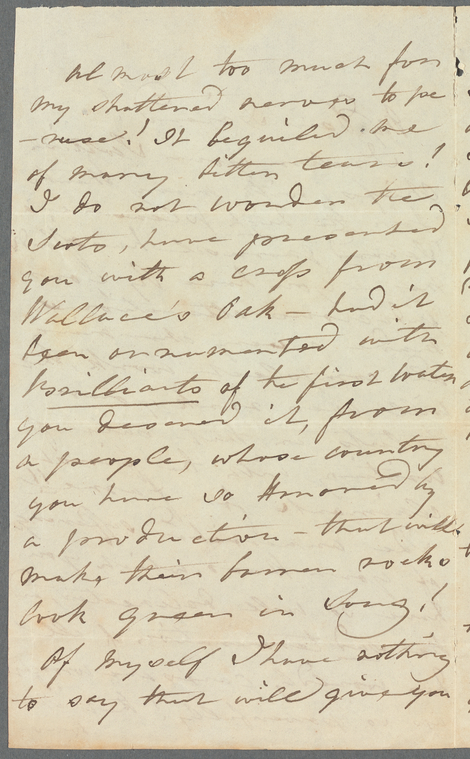 almost too much for
my shattered nerves to pe
-ruse! It beguiled me
of many bitter tears!
I do not wonder the
Scots, have presented
you with a cross from
Wallace's Oak - had it
been ornamented with
Brilliants of the first Water
you deserved it, from
a people, whose country
you have so Honored by
a production - that will
make their barren rocks
look green in Song!
Of myself I have nothing
to say that will give you